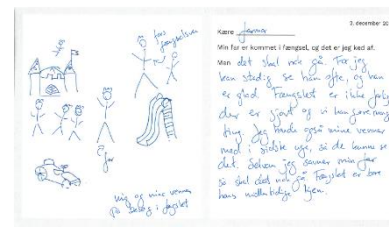 fars
fængselsven
far
mig og mine venner
på besøg i fængslet
3. december 20
Kære
Min far er kommet i fængsel, og det er jeg ked af.
Men det skal nok gå. For jeg
kan stadig se ham ofte, og han
er glad. Fængslet er ikke farligt
der er sjovt og vi kan lave mange
ting. Jeg havde også mine venner
med i sidste uge, så de kunne se
det. Selvom jeg savner min far
så skal det nok gå. Fængslet er bare
hans midlertidige hjem.